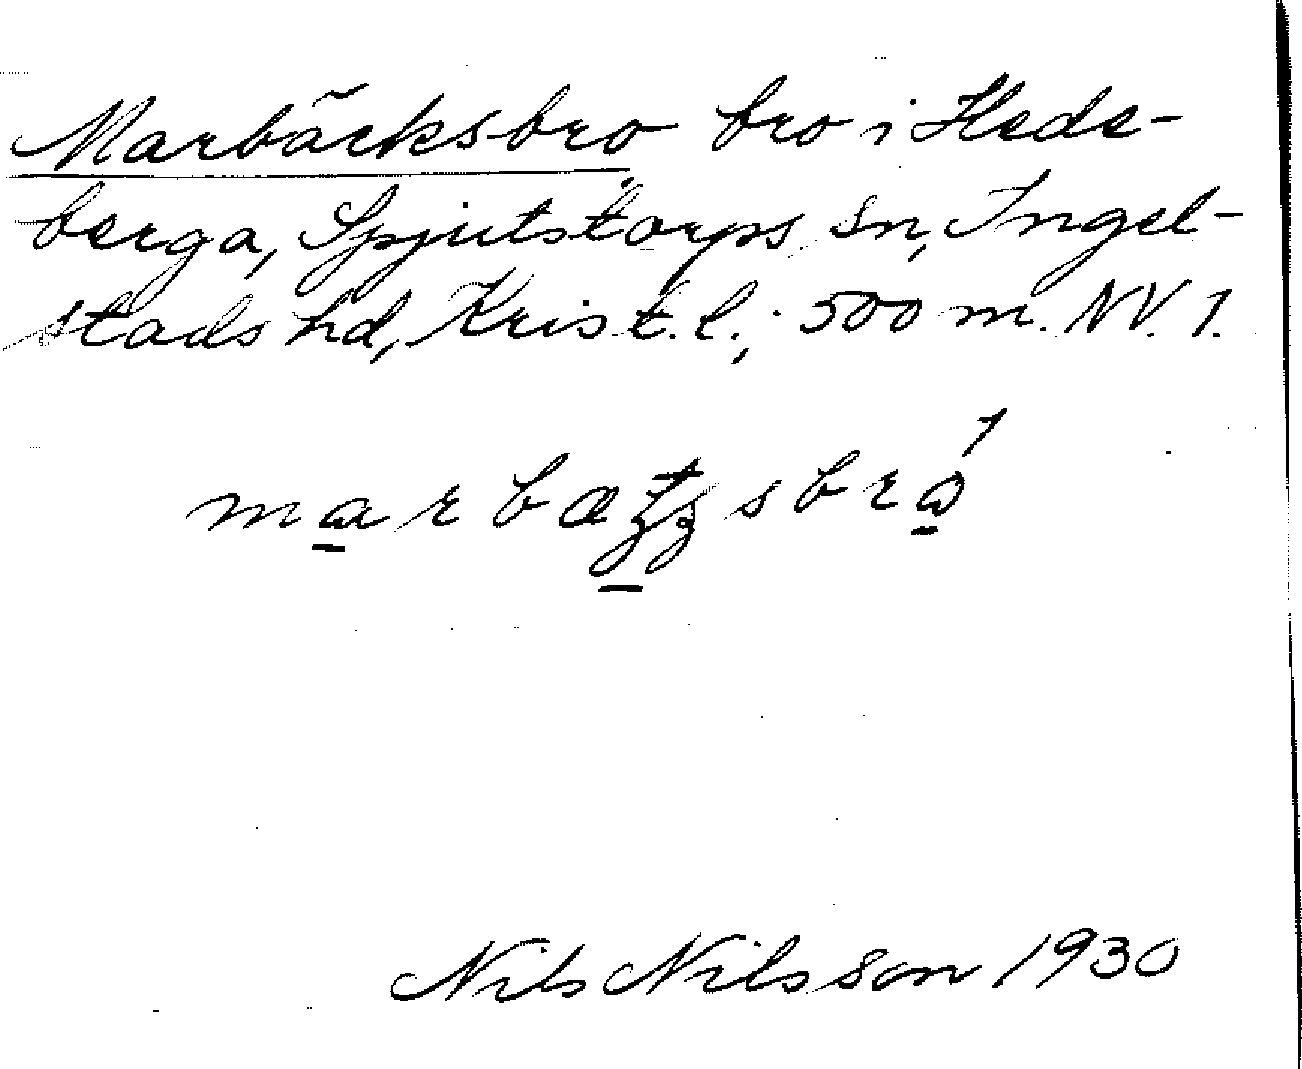 Marbäcksbro bro i Heds-
berga, Spjutstorps sn, Ingel-
stads hd, Krist. l.; 500 m. NV. 1.
Nils Nilsson 1930